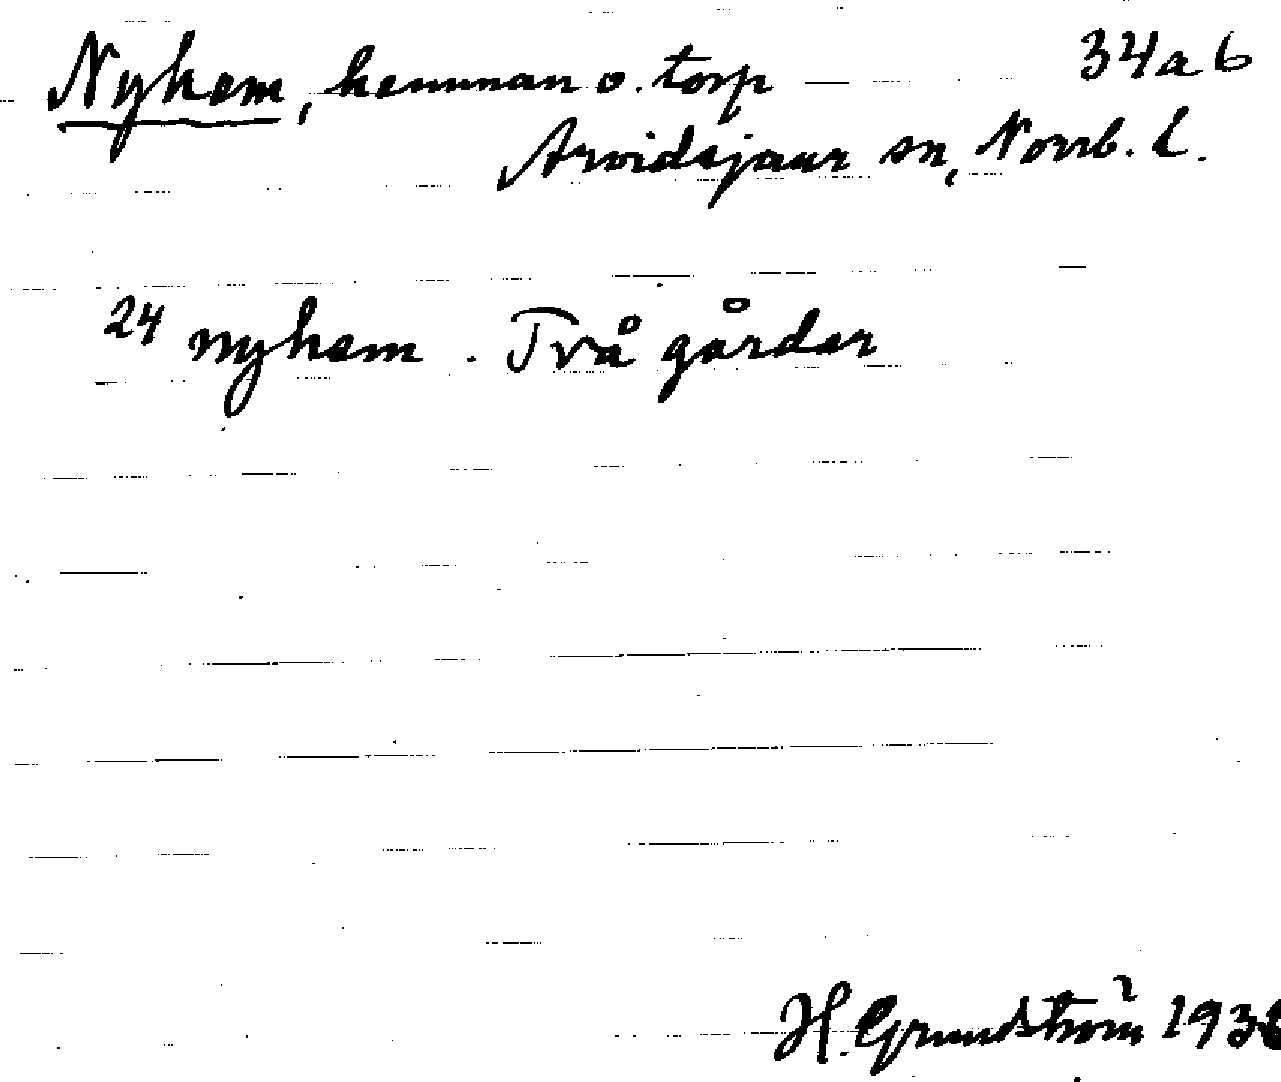 Nyhem, hemman o. torp — 34a6
Arvidsjaur sn, Norrb. L.
24 nyhem. Två gårdar
H. Grundström